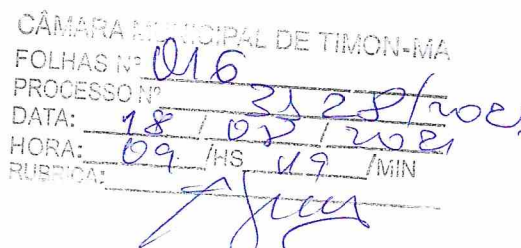 CÂMARA MUNICIPAL DE TIMON-MA
FOLHAS Nº 016
PROCESSO Nº 3128/2021
DATA: 18 / 03 / 2021
HORA: 09 /HS 19 /MIN
RUBRICA: